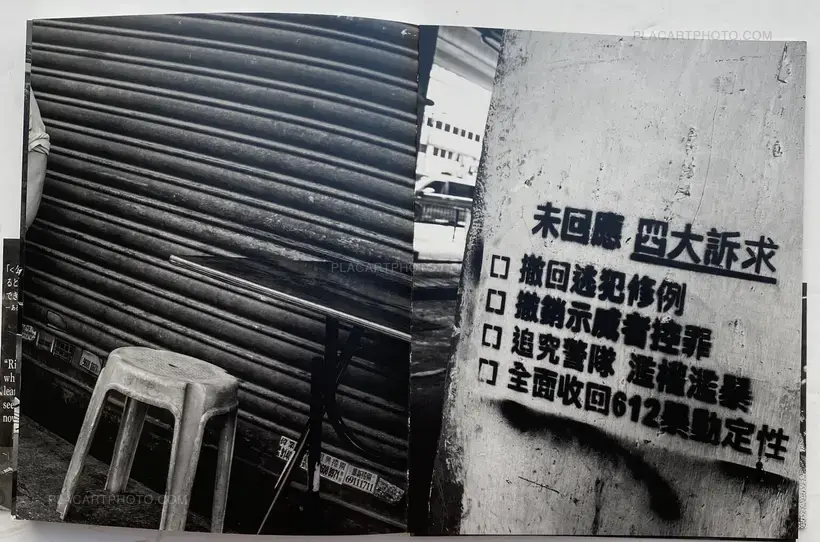 PLACARTPHOTO.COM
未回應 四大訴求
撤回逃犯修例
撤銷示威者控罪
追究警隊 濫權濫暴
全面收回612暴動定性
PLACARTPHOTO.COM
PLACARTPHOTO.COM
"Ri
wh
lea
see
now